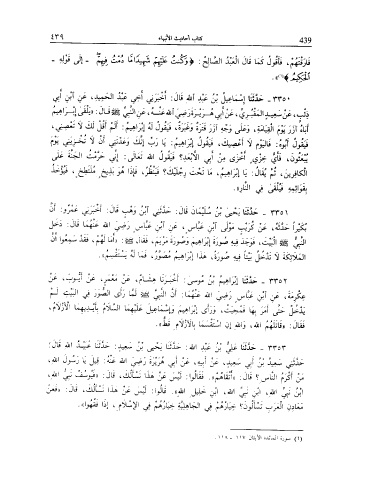 ٤٣٩ كتاب أحاديث الأنبياء 439
فَارَقْتَهُمْ، فَأَقُولُ كَمَا قَالَ الْعَبْدُ الصَّالِحُ: ﴿وَكُنتُ عَلَيْهِمْ شَهِيدًا مَّا دُمْتُ فِيهِمْ﴾ - إِلَى قَوْلِهِ -
﴿الْحَكِيمُ﴾(١).
٣٣٥٠ - حَدَّثَنَا إِسْمَاعِيلُ بْنُ عَبْدِ اللهِ قَالَ: أَخْبَرَنِي أَخِي عَبْدُ الْحَمِيدِ، عَنِ ابْنِ أَبِي
ذِئْبٍ، عَنْ سَعِيدٍ الْمَقْبُرِيِّ، عَنْ أَبِي هُرَيْرَةَ رَضِيَ اللهُ عَنْهُ، عَنِ النَّبِيِّ ﷺ قَالَ: «يَلْقَى إِبْرَاهِيمُ
أَبَاهُ آزَرَ يَوْمَ الْقِيَامَةِ، وَعَلَى وَجْهِ آزَرَ قَتَرَةٌ وَغَبَرَةٌ، فَيَقُولُ لَهُ إِبْرَاهِيمُ: أَلَمْ أَقُلْ لَكَ لَا تَعْصِنِي،
فَيَقُولُ أَبُوهُ: فَالْيَوْمَ لَا أَعْصِيكَ، فَيَقُولُ إِبْرَاهِيمُ: يَا رَبِّ إِنَّكَ وَعَدْتَنِي أَنْ لَا تُخْزِيَنِي يَوْمَ
يُبْعَثُونَ، فَأَيُّ خِزْيٍ أَخْزَى مِنْ أَبِي الْأَبْعَدِ؟ فَيَقُولُ اللهُ تَعَالَى: إِنِّي حَرَّمْتُ الْجَنَّةَ عَلَى
الْكَافِرِينَ، ثُمَّ يُقَالُ: يَا إِبْرَاهِيمُ، مَا تَحْتَ رِجْلَيْكَ؟ فَيَنْظُرُ، فَإِذَا هُوَ بِذِيخٍ مُلْتَطِخٍ، فَيُؤْخَذُ
بِقَوَائِمِهِ فَيُلْقَى فِي النَّارِ».
٣٣٥١ - حَدَّثَنَا يَحْيَى بْنُ سُلَيْمَانَ قَالَ: حَدَّثَنِي ابْنُ وَهْبٍ قَالَ: أَخْبَرَنِي عَمْرٌو: أَنَّ
بُكَيْرًا حَدَّثَهُ، عَنْ كُرَيْبٍ مَوْلَى ابْنِ عَبَّاسٍ، عَنِ ابْنِ عَبَّاسٍ رَضِيَ اللهُ عَنْهُمَا قَالَ: دَخَلَ
النَّبِيُّ ﷺ الْبَيْتَ، فَوَجَدَ فِيهِ صُورَةَ إِبْرَاهِيمَ وَصُورَةَ مَرْيَمَ، فَقَالَ: «أَمَا لَهُمْ، فَقَدْ سَمِعُوا أَنَّ
الْمَلَائِكَةَ لَا تَدْخُلُ بَيْتًا فِيهِ صُورَةٌ، هَذَا إِبْرَاهِيمُ مُصَوَّرٌ، فَمَا لَهُ يَسْتَقْسِمُ».
٣٣٥٢ - حَدَّثَنَا إِبْرَاهِيمُ بْنُ مُوسَى: أَخْبَرَنَا هِشَامٌ، عَنْ مَعْمَرٍ، عَنْ أَيُّوبَ، عَنْ
عِكْرِمَةَ، عَنِ ابْنِ عَبَّاسٍ رَضِيَ اللهُ عَنْهُمَا: أَنَّ النَّبِيَّ ﷺ لَمَّا رَأَى الصُّوَرَ فِي الْبَيْتِ لَمْ
يَدْخُلْ حَتَّى أَمَرَ بِهَا فَمُحِيَتْ، وَرَأَى إِبْرَاهِيمَ وَإِسْمَاعِيلَ عَلَيْهِمَا السَّلَامُ بِأَيْدِيهِمَا الْأَزْلَامُ،
فَقَالَ: «قَاتَلَهُمُ اللهُ، وَاللهِ إِنِ اسْتَقْسَمَا بِالْأَزْلَامِ قَطُّ».
٣٣٥٣ - حَدَّثَنَا عَلِيُّ بْنُ عَبْدِ اللهِ: حَدَّثَنَا يَحْيَى بْنُ سَعِيدٍ: حَدَّثَنَا عُبَيْدُ اللهِ قَالَ:
حَدَّثَنِي سَعِيدُ بْنُ أَبِي سَعِيدٍ، عَنْ أَبِيهِ، عَنْ أَبِي هُرَيْرَةَ رَضِيَ اللهُ عَنْهُ: قِيلَ يَا رَسُولَ اللهِ،
مَنْ أَكْرَمُ النَّاسِ؟ قَالَ: «أَتْقَاهُمْ». فَقَالُوا: لَيْسَ عَنْ هَذَا نَسْأَلُكَ، قَالَ: «فَيُوسُفُ نَبِيُّ اللهِ،
ابْنُ نَبِيِّ اللهِ، ابْنِ نَبِيِّ اللهِ، ابْنِ خَلِيلِ اللهِ». قَالُوا: لَيْسَ عَنْ هَذَا نَسْأَلُكَ، قَالَ: «فَعَنْ
مَعَادِنِ الْعَرَبِ تَسْأَلُونَ؟ خِيَارُهُمْ فِي الْجَاهِلِيَّةِ خِيَارُهُمْ فِي الْإِسْلَامِ، إِذَا فَقُهُوا».
(١) سورة المائدة الآيتان ١١٧ - ١١٨.